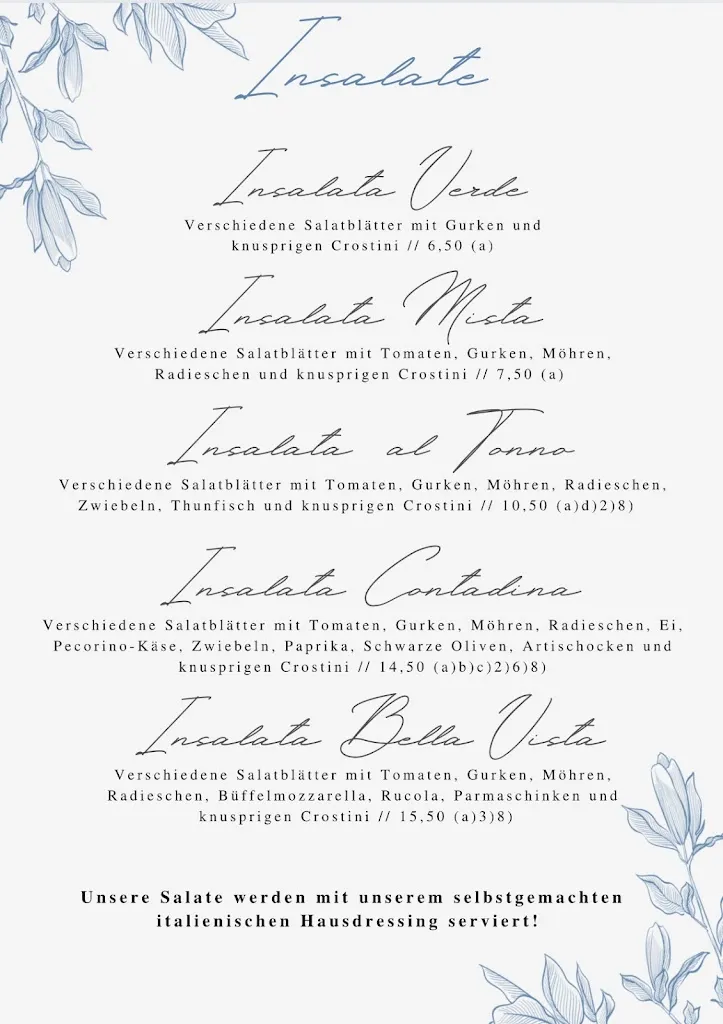 Insalate
Insalata Verde
Verschiedene Salatblätter mit Gurken und
knusprigen Crostini // 6,50 (a)
Insalata Mista
Verschiedene Salatblätter mit Tomaten, Gurken, Möhren,
Radieschen und knusprigen Crostini // 7,50 (a)
Insalata al Tonno
Verschiedene Salatblätter mit Tomaten, Gurken, Möhren, Radieschen,
Zwiebeln, Thunfisch und knusprigen Crostini // 10,50 (a)d)2)8)
Insalata Contadina
Verschiedene Salatblätter mit Tomaten, Gurken, Möhren, Radieschen, Ei,
Pecorino-Käse, Zwiebeln, Paprika, Schwarze Oliven, Artischocken und
knusprigen Crostini // 14,50 (a)b)c)2)6)8)
Insalata Bella Vista
Verschiedene Salatblätter mit Tomaten, Gurken, Möhren,
Radieschen, Büffelmozzarella, Rucola, Parmaschinken und
knusprigen Crostini // 15,50 (a)3)8)
Unsere Salate werden mit unserem selbstgemachten
italienischen Hausdressing serviert!